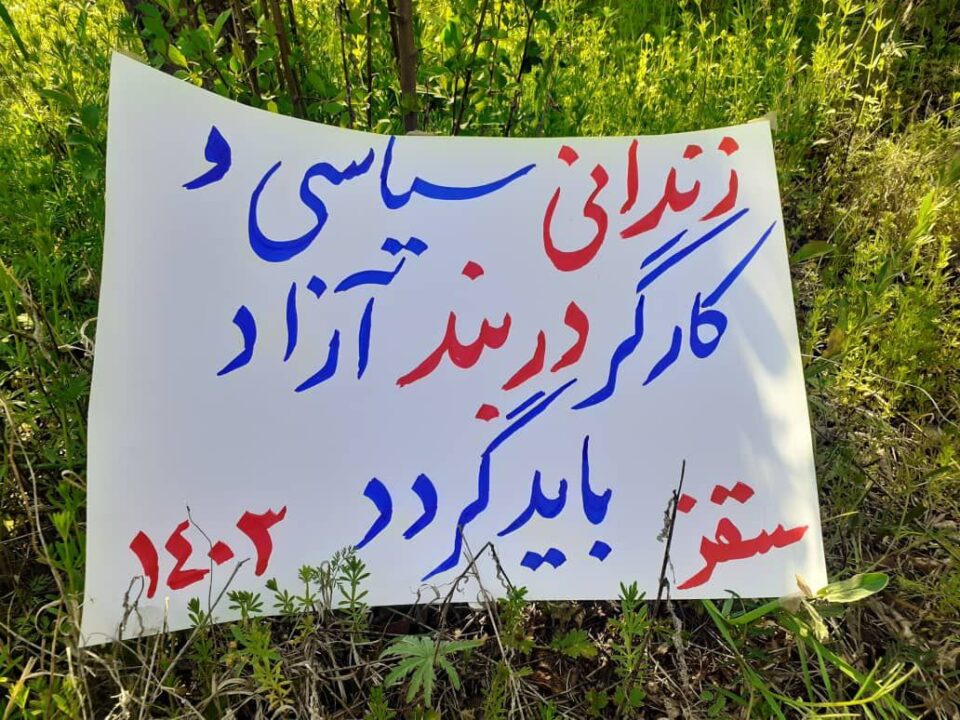 زندانی سیاسی و
کارگر دربند آزاد
باید گردد
سقز ۱۴۰۳